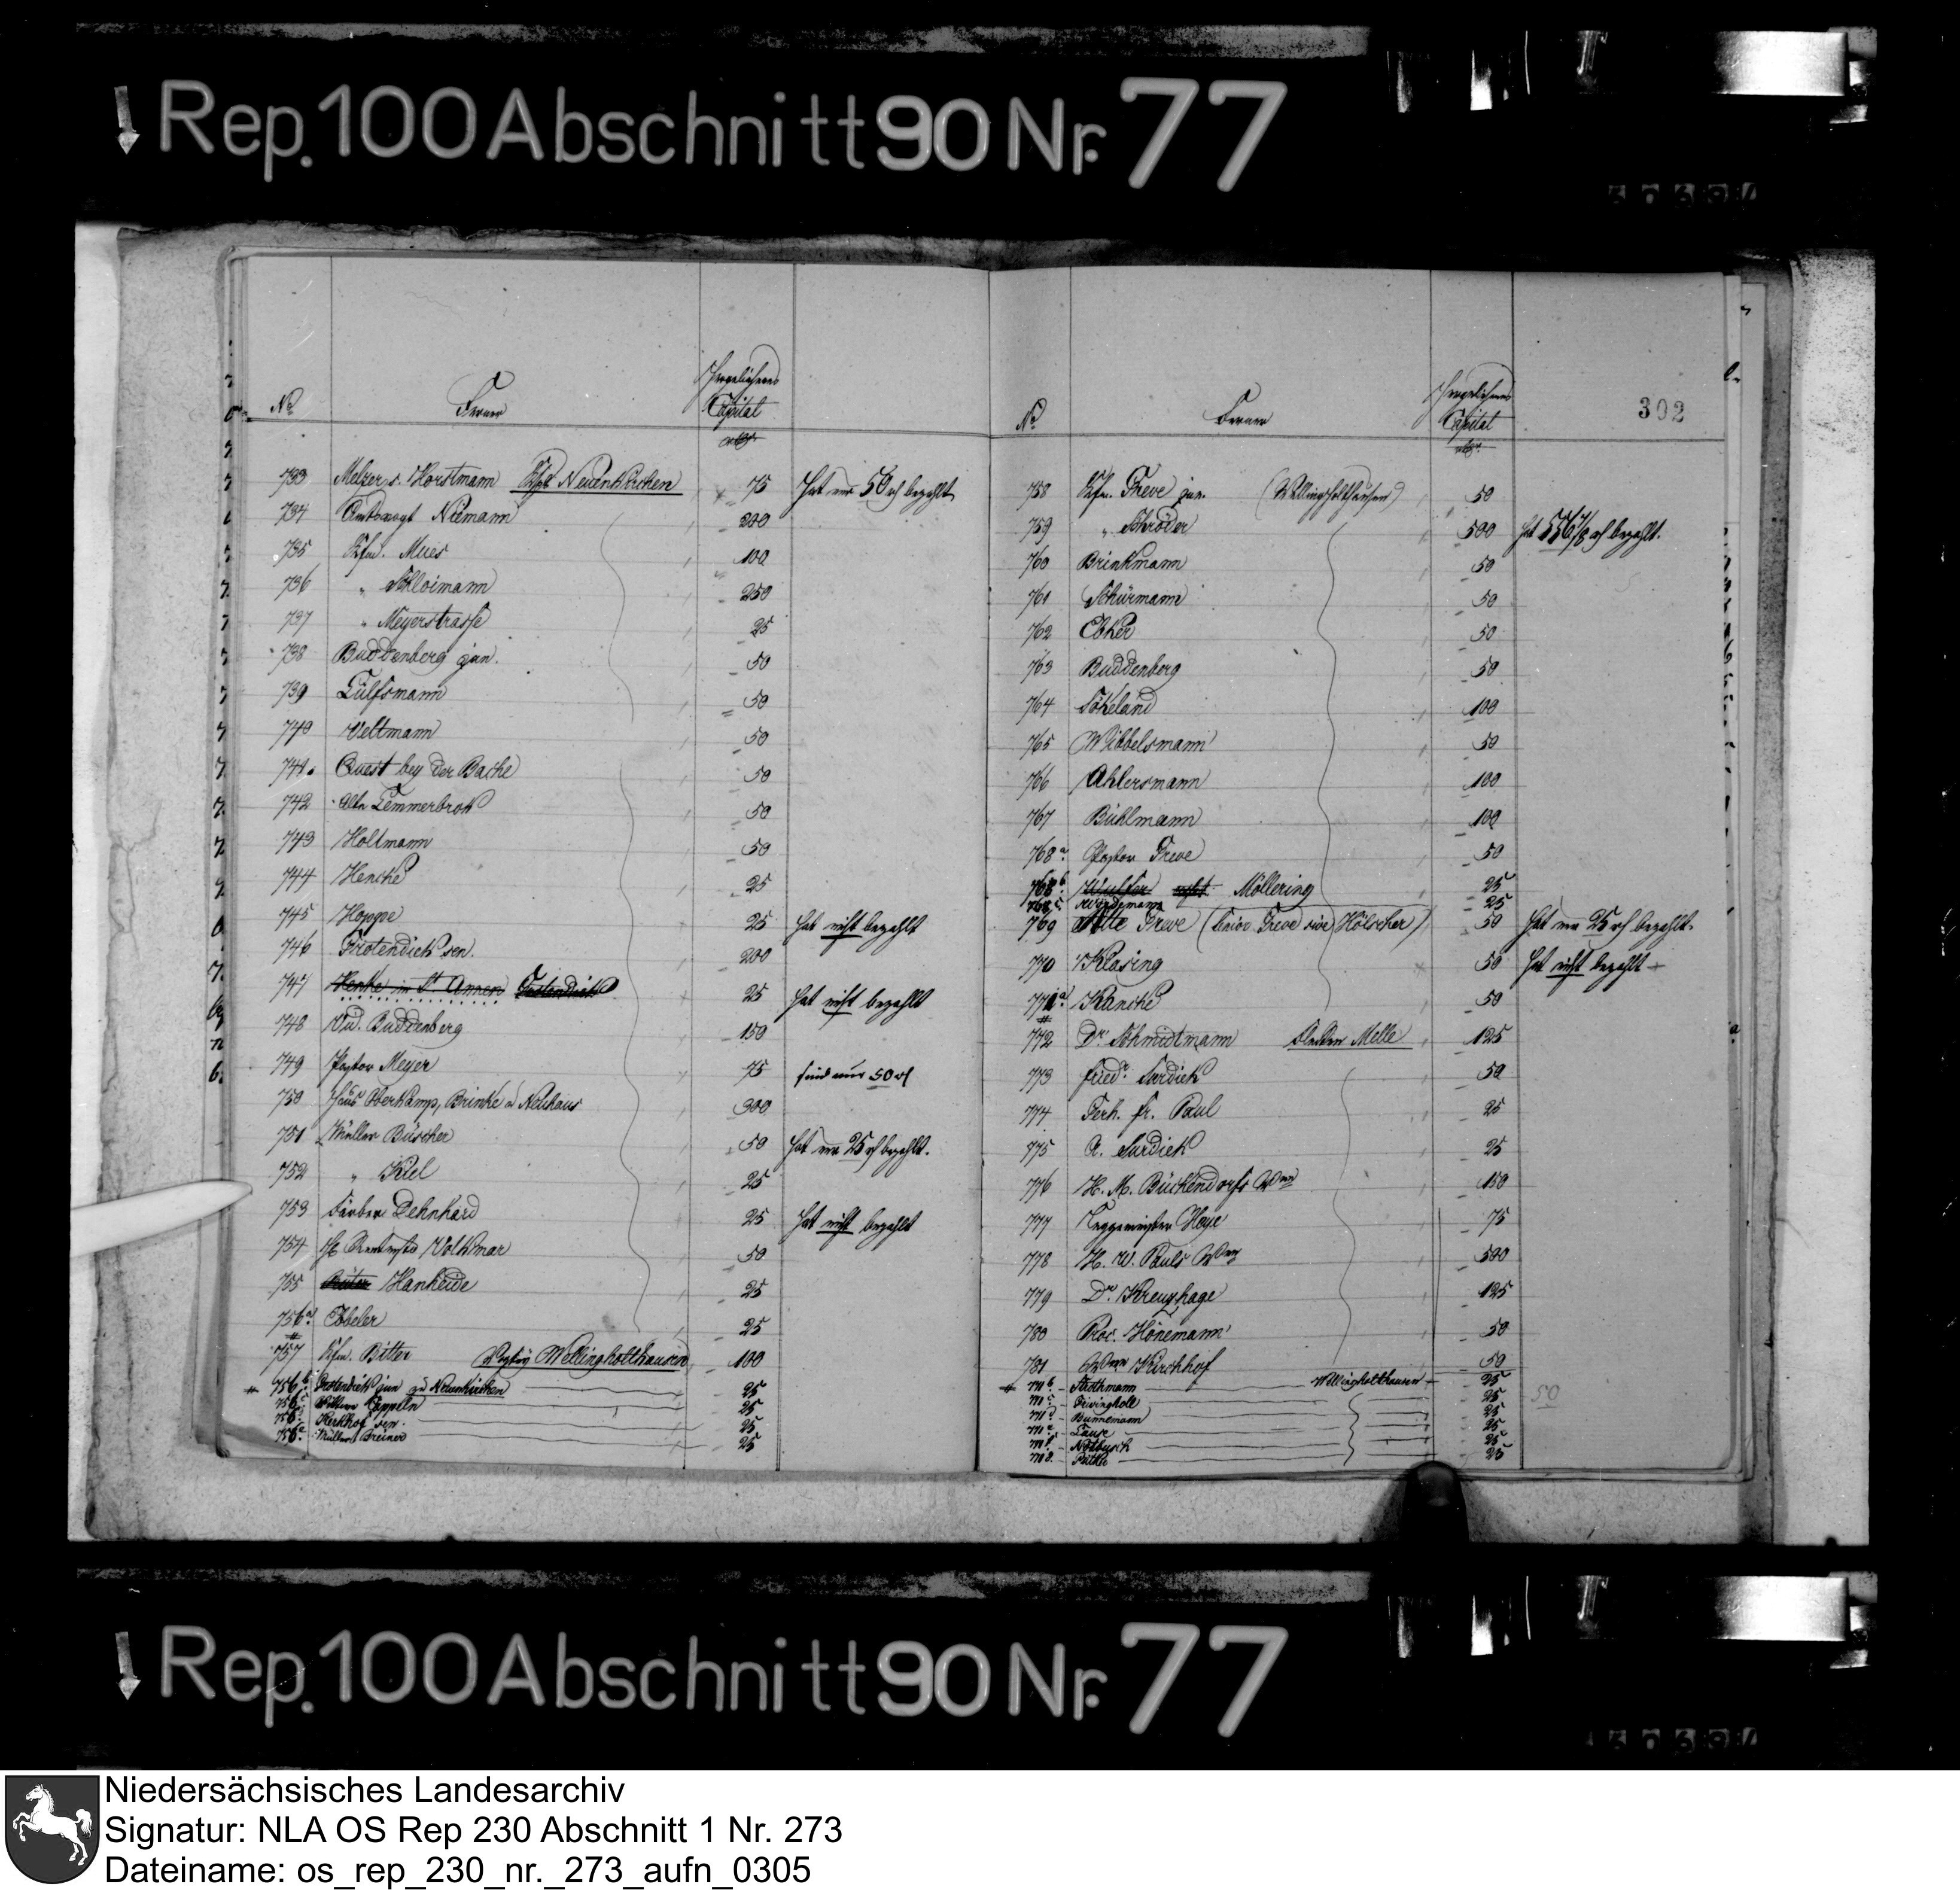 Rep. 100 Abschnitt 90 Nr. 77
302
No. Ferner Capital
733 Melzer, s. Horstmann Neuenkirchen 75 hat nur 50 bezahlt
734 Amtsvogt Niemann 200
735 Kfm. Mues 100
736 " 250
737 " Meyerstrasse 25
738 Buddenberg jun. 50
739 Lülfsmann 50
740 Veltmann 50
741. Quest bey der Bache 50
742 Temmerbrok 50
743 Holtmann 50
744 Henche 25
745 Hoppe 25 hat nicht bezahlt
746 Grotendiek sen. 200
747 Henke in St. Annen Grotendiek 25 hat nicht bezahlt
748 Vid. Buddenberg 150
749 Pastor Meyer 75 sind nur 50
750 Oberkamp, Brinke u Neuhaus 300
751 Müller Büscher 50 hat nur 25 bezahlt.
752 " Kiel 25
753 Färber Dehnhard 25 hat nicht bezahlt
754 Volkmar 50
755 Hanheide 25
756a Ebeler 25
757 Kfm. Bitter Wellingholthausen 100
756b Grotendiek jun zu Neuenkirchen 25
756c Cappeln 25
756d Kerkhof sen. 25
756e Müller Breiner 25
No. Ferner Capital
758 Kfm. Greve jun. (Wellingholthausen) 50
759 " Schröder 500 hat bezahlt.
760 Brinkmann 50
761 Schürmann 50
762 50
763 Buddenberg 50
764 Sökeland 100
765 Wibbelsmann 50
766 Ahlersmann 100
767 Bühlmann 100
768a Pastor Greve 50
768b Möllering 25
768c 25
769 Greve (Greve sive Hölscher) 50 hat nur 25 bezahlt.
770 Klasing 50 hat nicht bezahlt
771a Künche 50
772 Dr. Schmidtmann Flecken Melle 125
773 Friedr. Sardiek 50
774 Gerh. Fr. Paul 25
775 A. Sardiek 25
776 H. M. Bückendorfs Wwe 150
777 Leggemeister Hoye 75
778 H. W. Pauls Wwe 500
779 Dr. Kreuzhage 125
780 Proc. Hönemann 50
781 Wwe Kirchhof 50
771b Strothmann Wellingholthausen 25
771c 25 50
771d Bunnemann 25
771e 25
771f Notbusch 25
771g 25
Rep. 100 Abschnitt 90 Nr. 77
Niedersächsisches Landesarchiv
Signatur: NLA OS Rep 230 Abschnitt 1 Nr. 273
Dateiname: os_rep_230_nr._273_aufn_0305